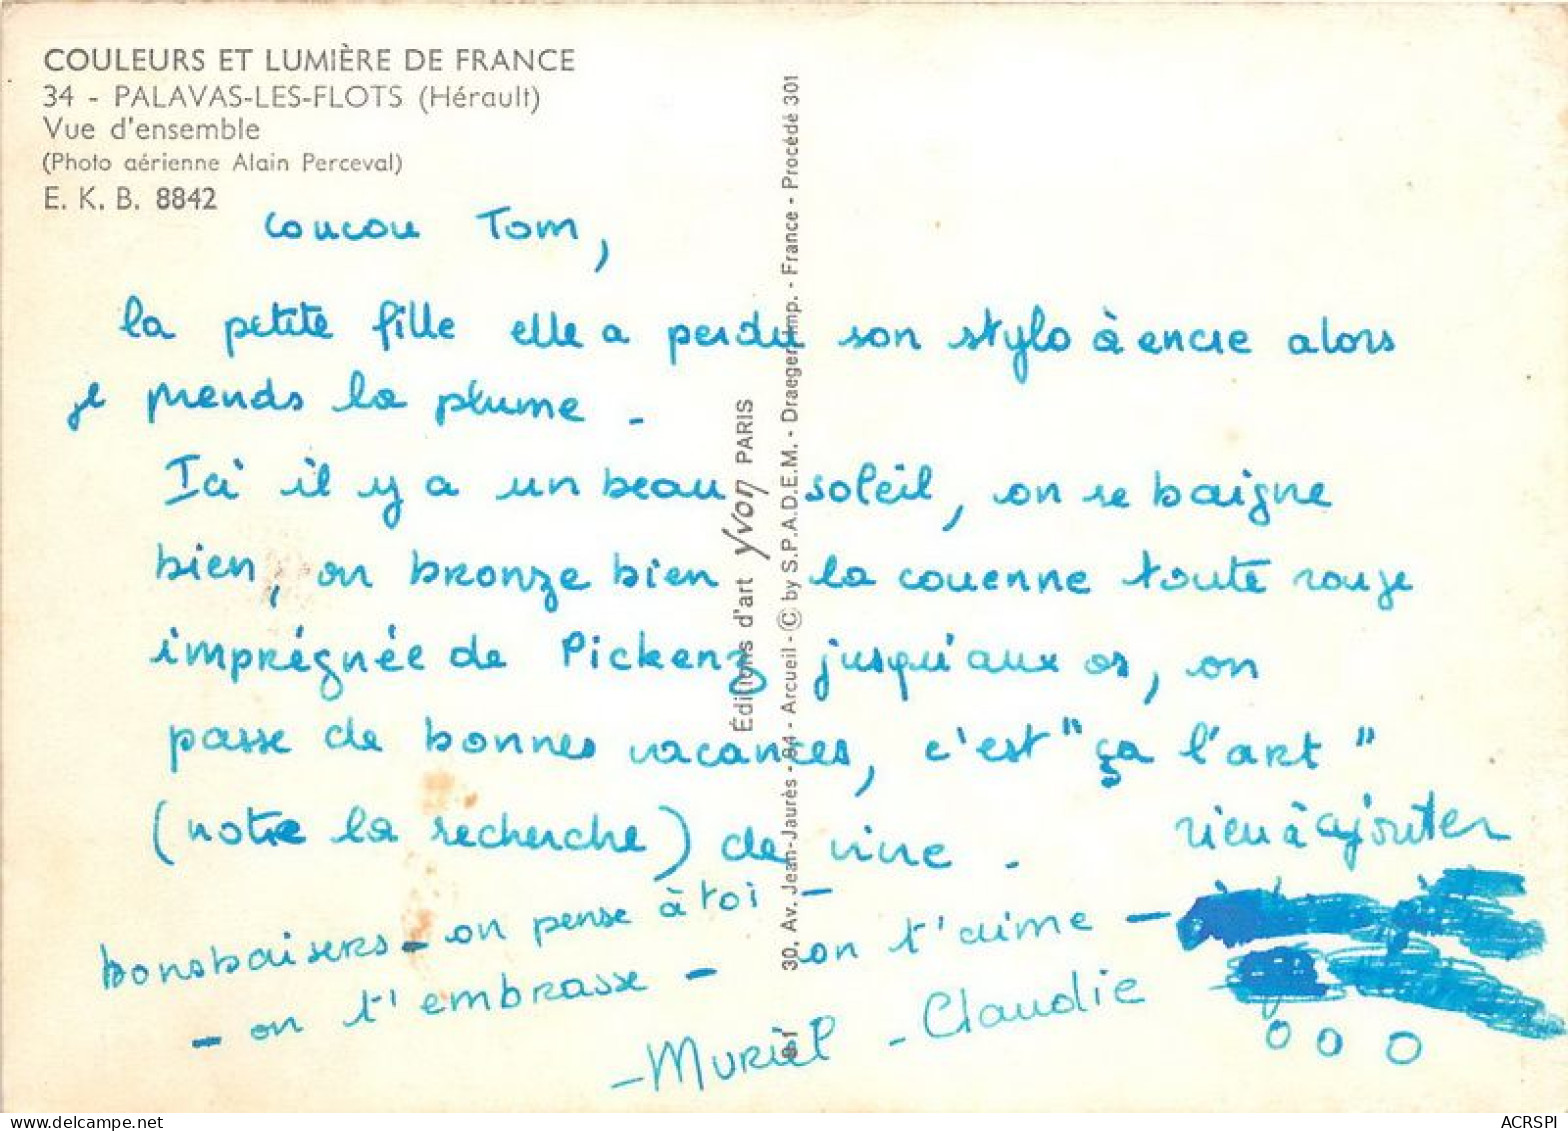 COULEURS ET LUMIÈRE DE FRANCE
34 - PALAVAS-LES-FLOTS (Hérault)
Vue d'ensemble
(Photo aérienne Alain Perceval)
E. K. B. 8842
coucou Tom,
la petite fille elle a perdu son stylo à encre alors
je prends la plume -
Ici il y a un beau soleil, on se baigne
bien, on bronze bien la couenne toute rouge
imprégnée de Pickenz jusqu'aux os, on
passe de bonnes vacances, c'est "ça l'art"
(notre la recherche) de vivre -
rien à ajouter
bons baisers - on pense à toi -
on t'aime -
- on t'embrasse -
- Muriel - Claudie
Éditions d'art yvon PARIS
30, Av. Jean-Jaurès - 94 - Arcueil - © by S.P.A.D.E.M. - Draeger Imp. - France - Procédé 301
delcampe.net
ACRSPI